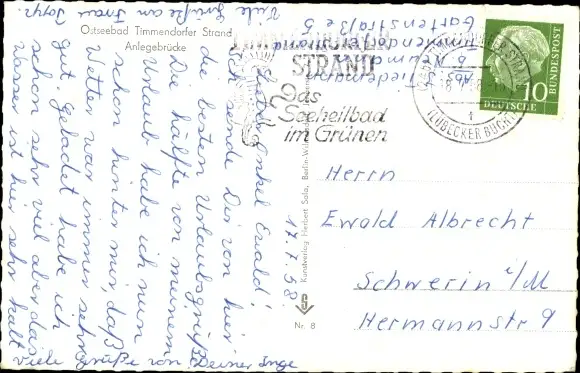 Ostseebad Timmendorfer Strand
Anlegebrücke
17.7.58
Ewald!
ich sende Dir von hier
die besten Urlaubsgrüße
Die hälfte von meinem
Urlaub habe ich nun
schon hinter mir, daß
Wetter war immer sehr
gut Geladet habe ich
schon sehr viel aber das
Wasser ist hier sehr kalt
viele Grüße von Deiner Inge
Viele Grüße an Frau
STRAND
Das
Seeheilbad
im Grünen
(LÜBECKER BUCHT)
DEUTSCHE
BUNDESPOST
10
Abs.
Gartenstraße 5
Herrn
Ewald Albrecht
Schwerin i/M
Hermannstr 9
Kunstverlag Herbert Sala, Berlin
Nr. 8